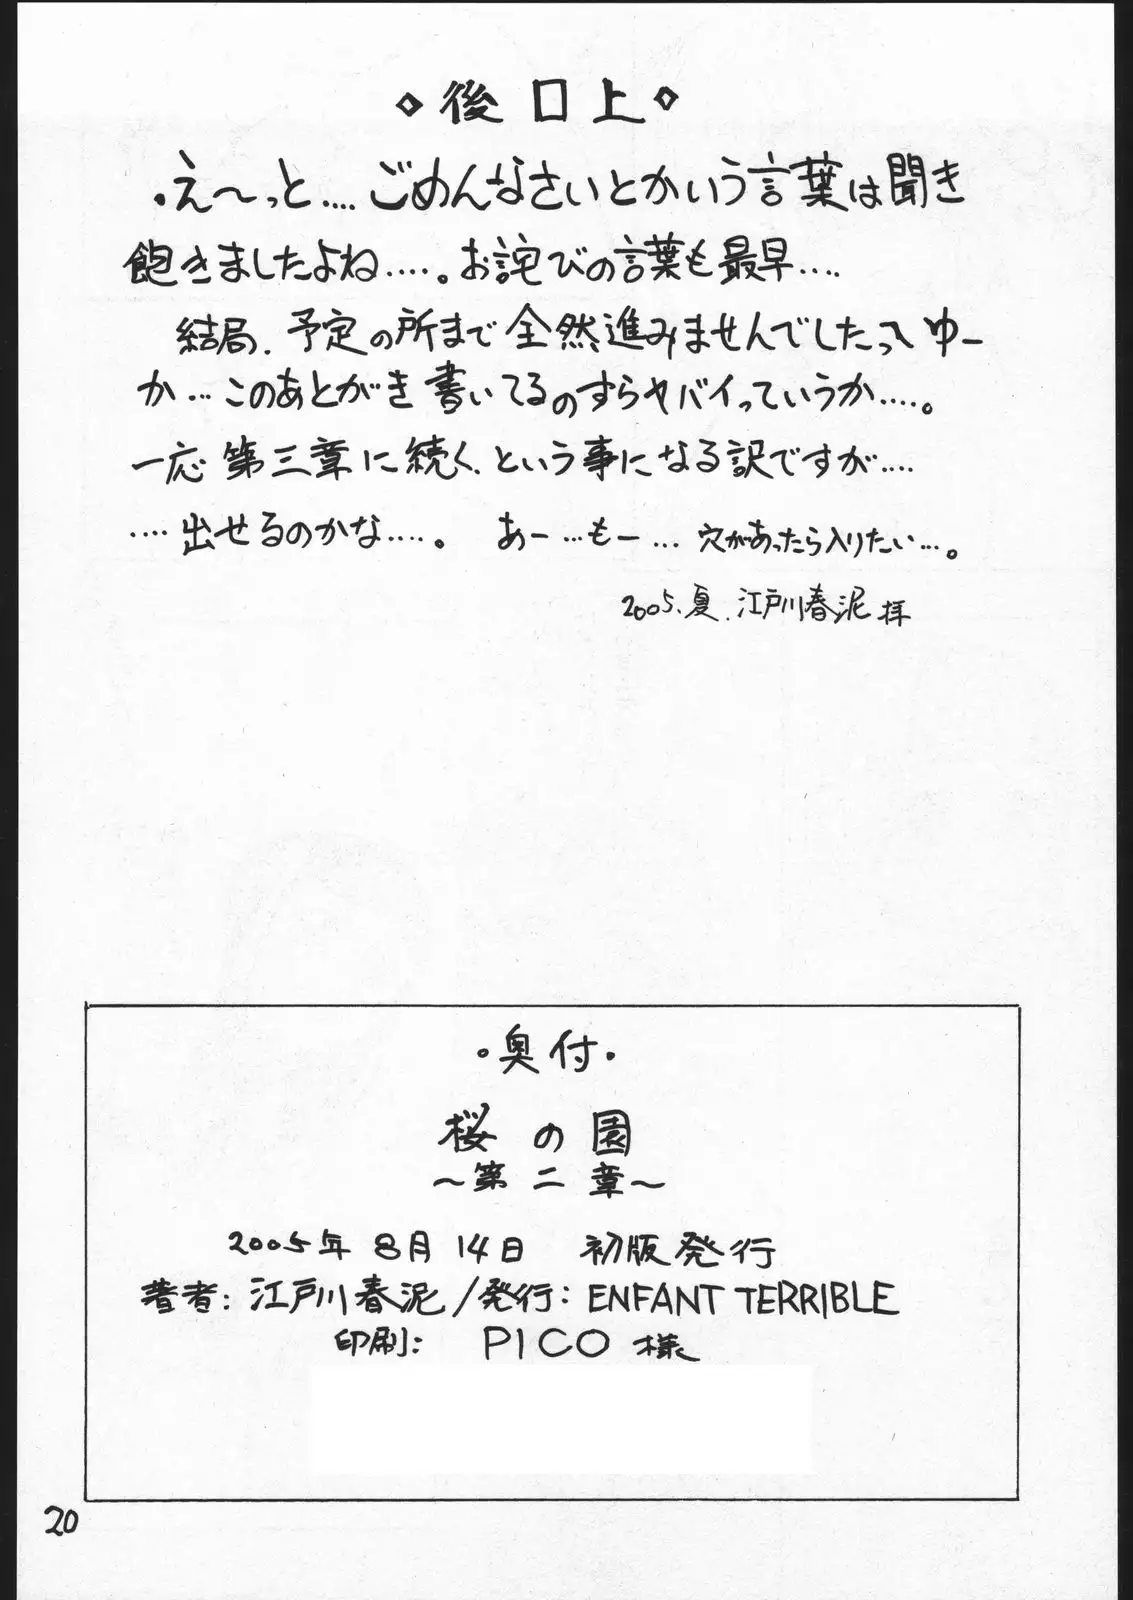 ◇後口上◇
・え〜っと....ごめんなさいとかいう言葉は聞き
飽きましたよね....。お詫びの言葉も最早....
結局、予定の所まで全然進みませんでしたってゆー
か...このあとがき書いてるのすらヤバイっていうか....。
一応第三章に続く、という事になる訳ですが....
....出せるのかな....。 あー...もー... 穴があったら入りたい...。
2005.夏.江戸川春泥 拝
・奥付・
桜の園
〜第二章〜
2005年8月14日 初版発行
著者:江戸川春泥/発行:ENFANT TERRIBLE
印刷: PICO 様
20